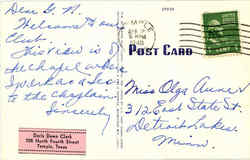 Dear G. N.
Welcome to our
Club.
This view is of
the chapel where
I work as a Sec.
to the Chaplain
Sincerely
Doris Dawn Clark
708 North Fourth Street
Temple, Texas
POST CARD
Miss Olga
312 East State St.
Detroit Lakes
Minn.